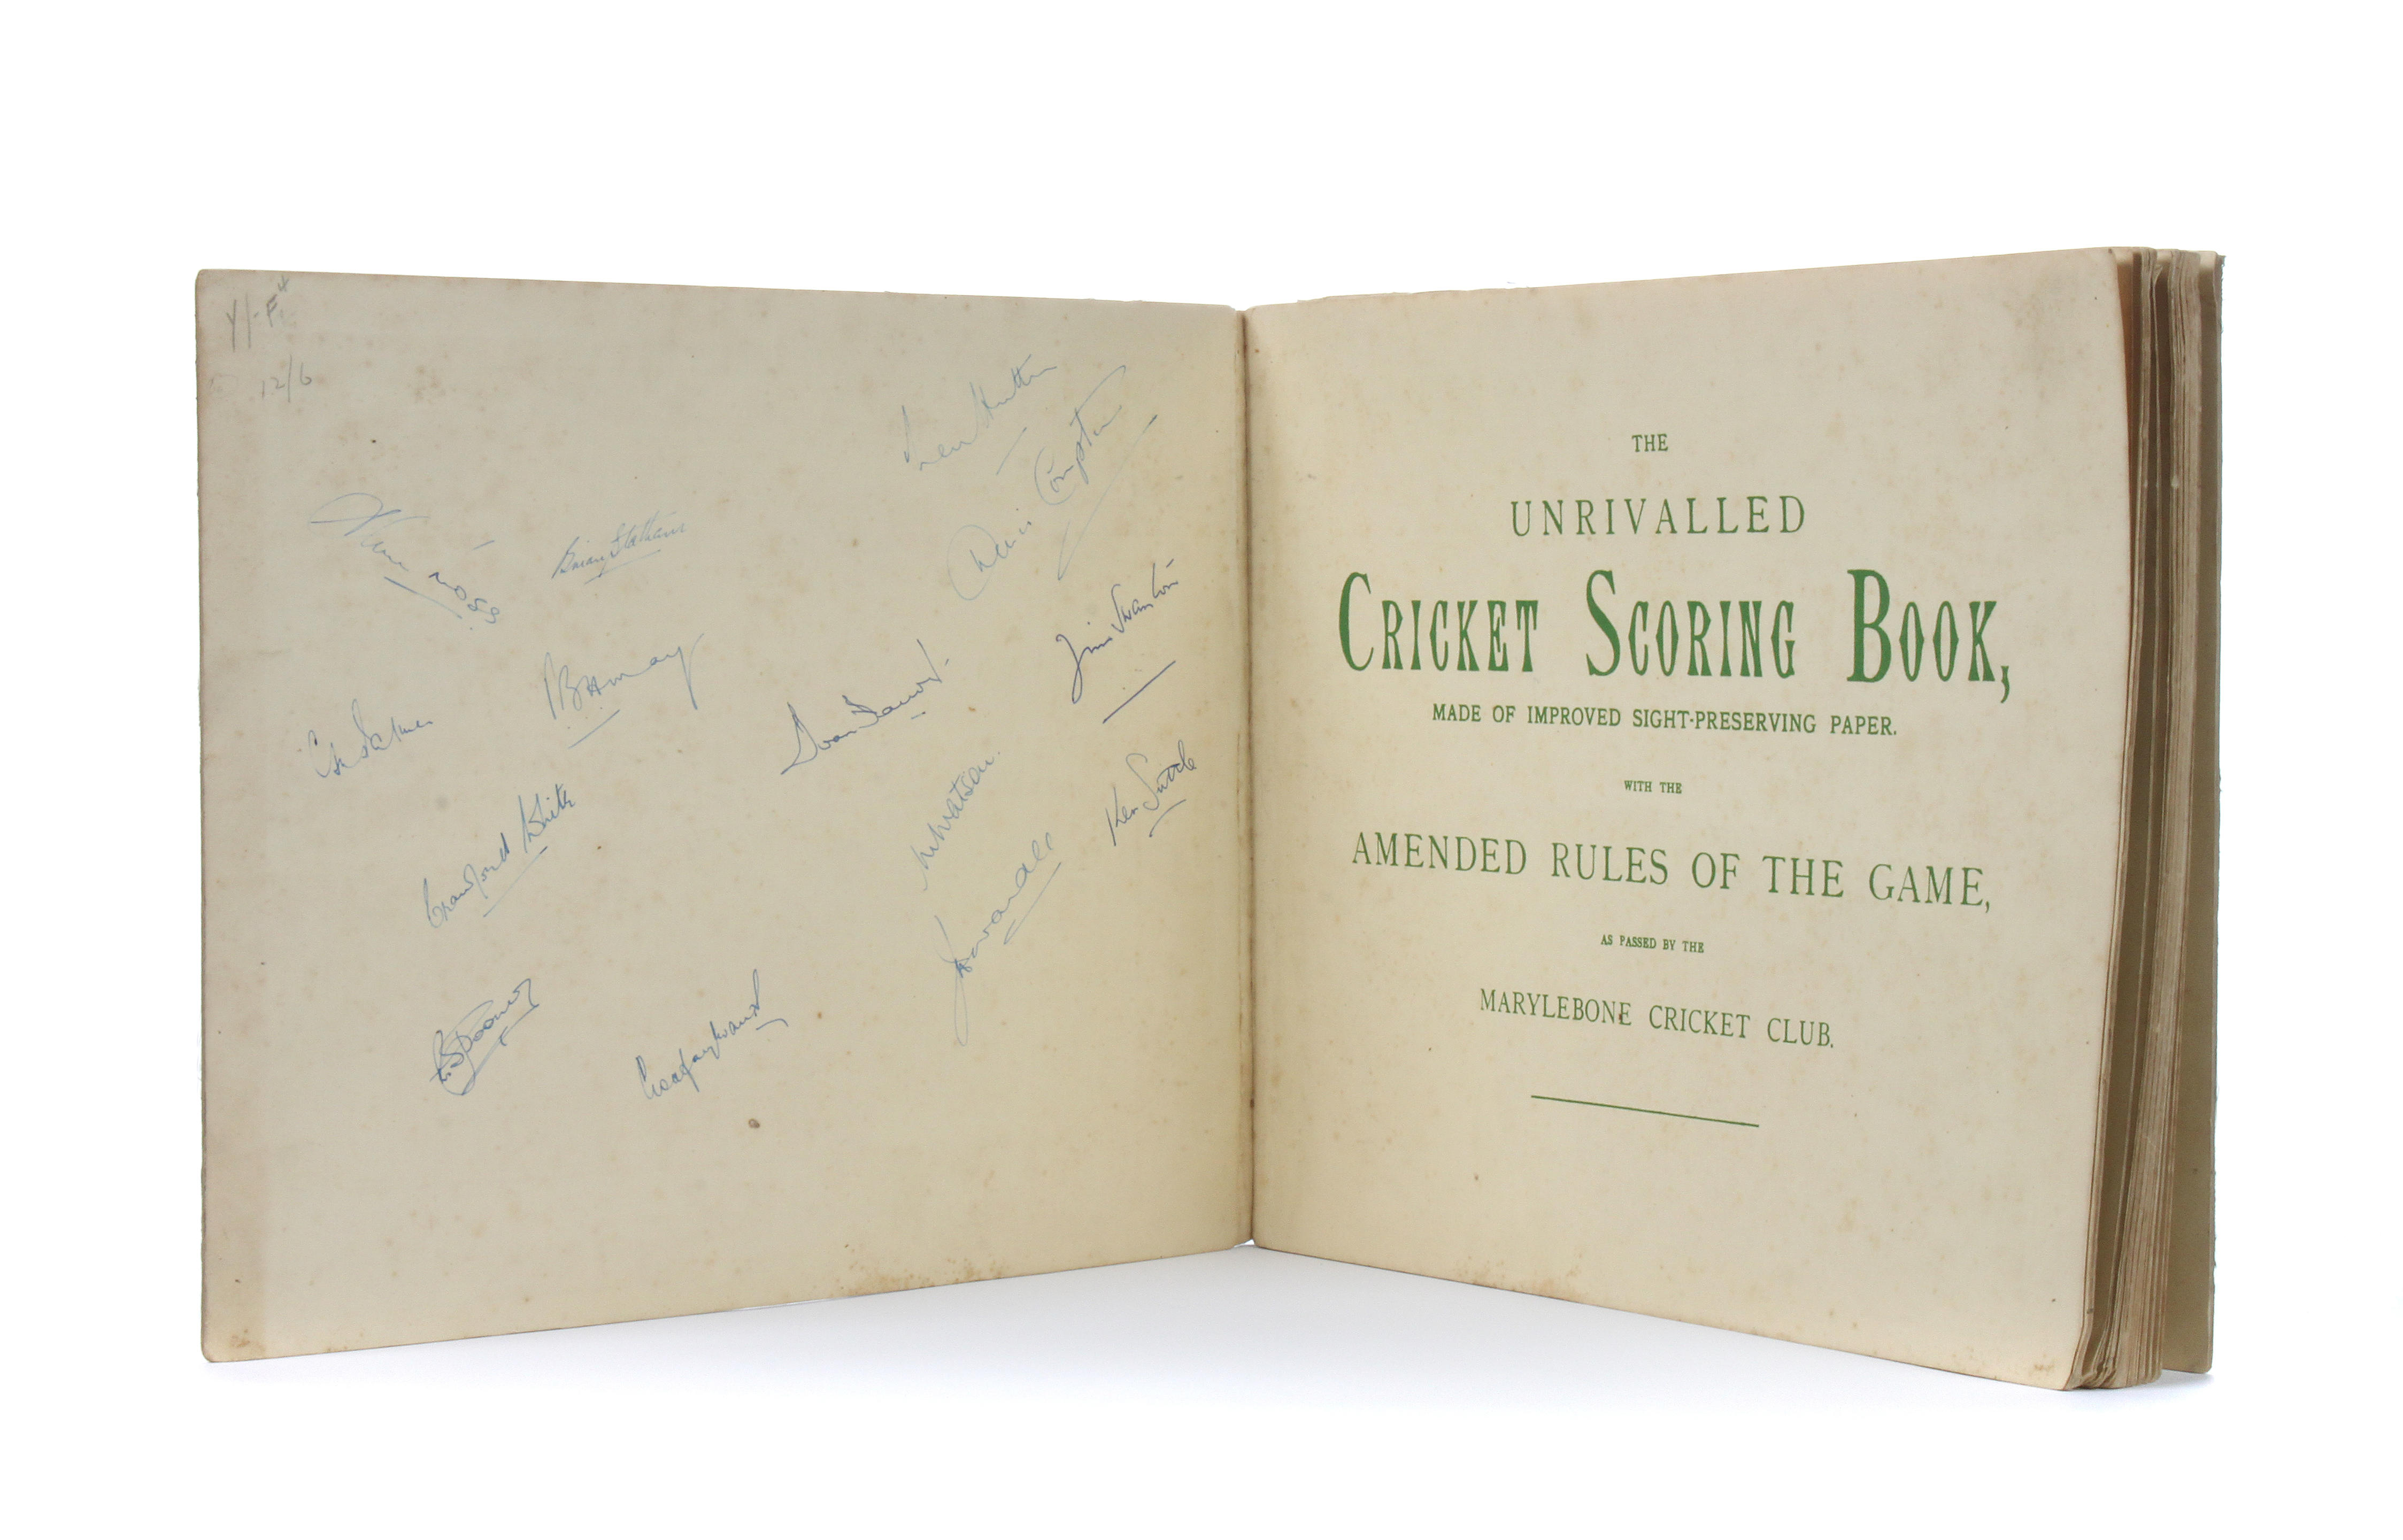 12/6
Len Hutton
Denis Compton
Brian Statham
Jim Swanton
PBH May
Swan
C H Palmer
W Watson
Ken Suttle
Crawford White
J H Wardle
R T Spooner
THE
UNRIVALLED
CRICKET SCORING BOOK,
MADE OF IMPROVED SIGHT-PRESERVING PAPER.
WITH THE
AMENDED RULES OF THE GAME,
AS PASSED BY THE
MARYLEBONE CRICKET CLUB.